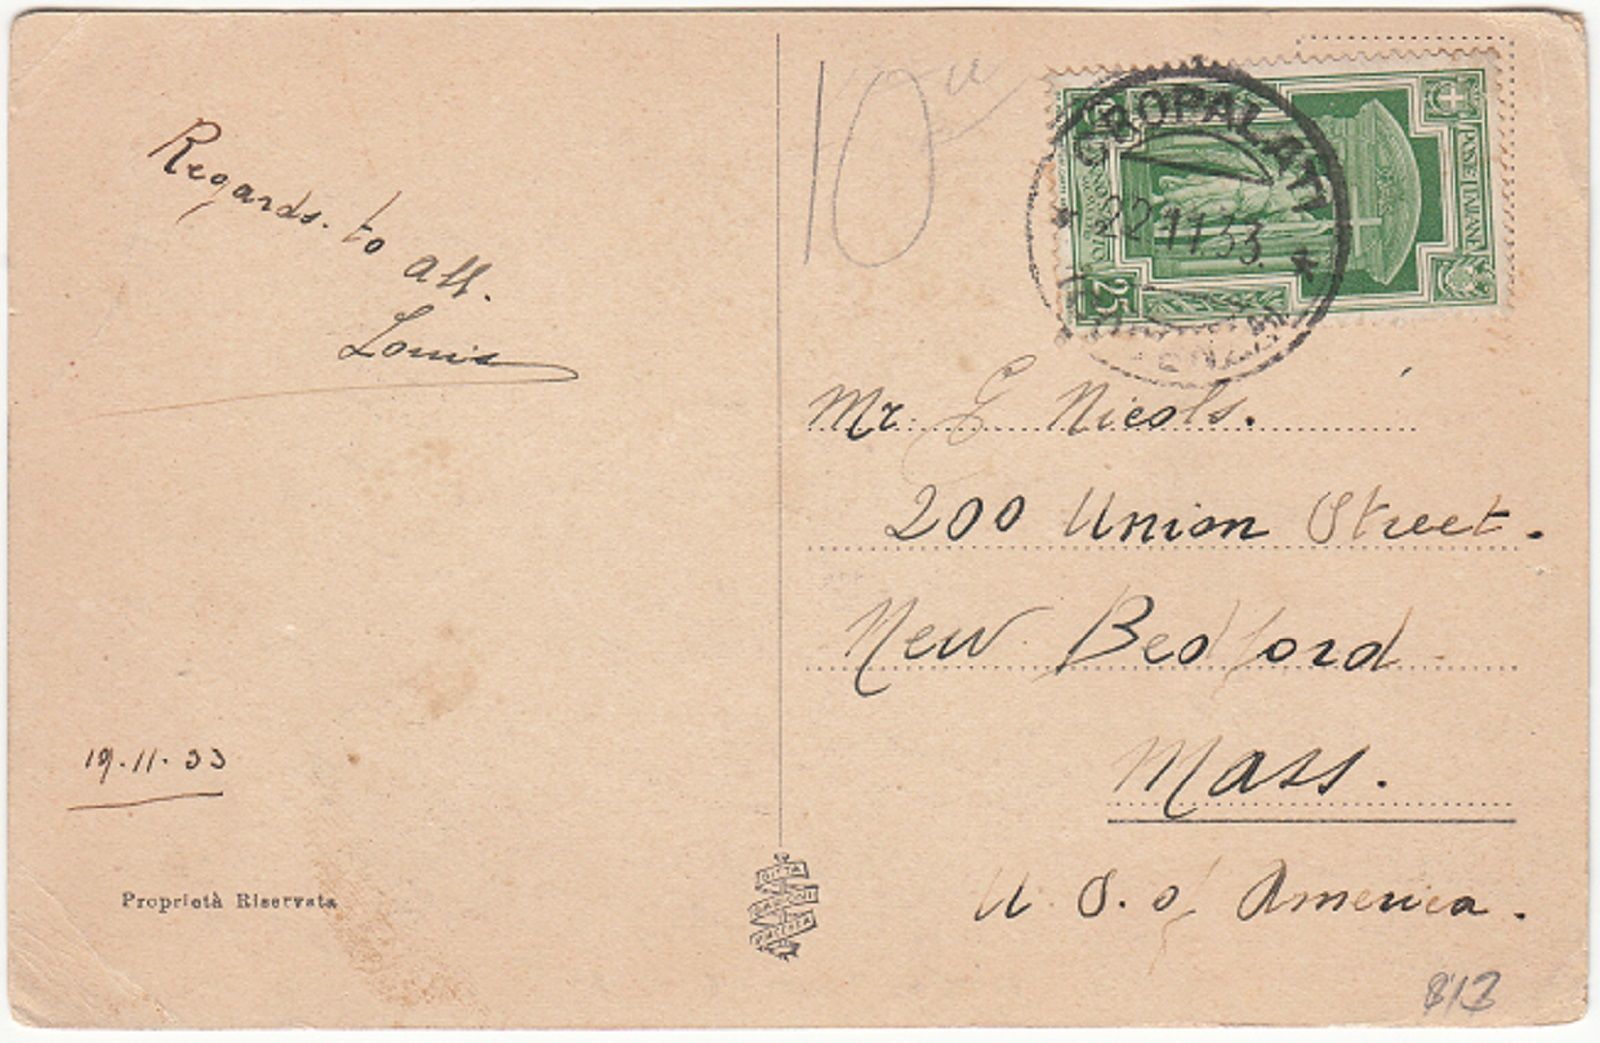 Regards. to all.
Louis
19.11.33
Proprietà Riservata
DITTA
10
CROPALATI
22.11.33
POSTE ITALIANE
25
Mr. G Nicols.
200 Union Street.
New Bedford
Mass.
U. S. of America.